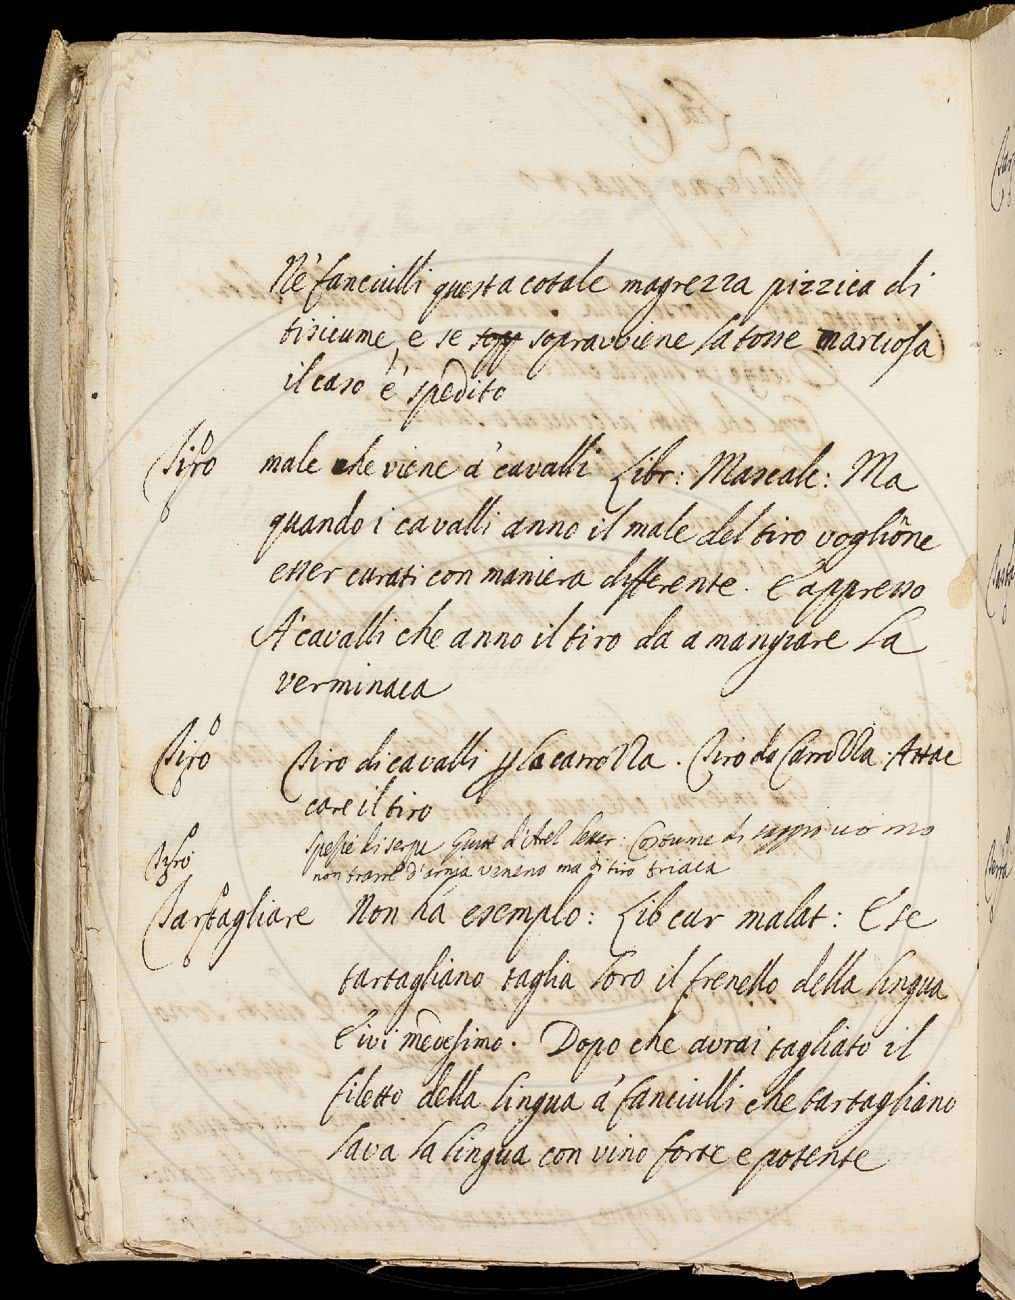 Ne' fanciulli questa cotale magrezza pizzica di
tisicume, e se sopravviene la tosse marciosa
il caso è spedito
Tiro male che viene a' cavalli Libr: Mascalc: Ma
quando i cavalli anno il male del tiro voglione
esser curati con maniera differente. E appresso
A' cavalli che anno il tiro da a mangiare la
verminaca
Tiro Tiro di cavalli p la carrozza. Tiro da Carrozza. Attac
care il tiro
Tiro spezie di serpe Guitt d'Arel letter: Costume di saggio uomo
non trarre d' veneno ma di tiro triaca
Tartagliare Non ha esemplo: Lib cur malat: E se
tartagliano taglia loro il frenello della lingua
E ivi medesimo. Dopo che avrai tagliato il
filetto della lingua a' fanciulli che tartagliano
lava la lingua con vino forte e potente